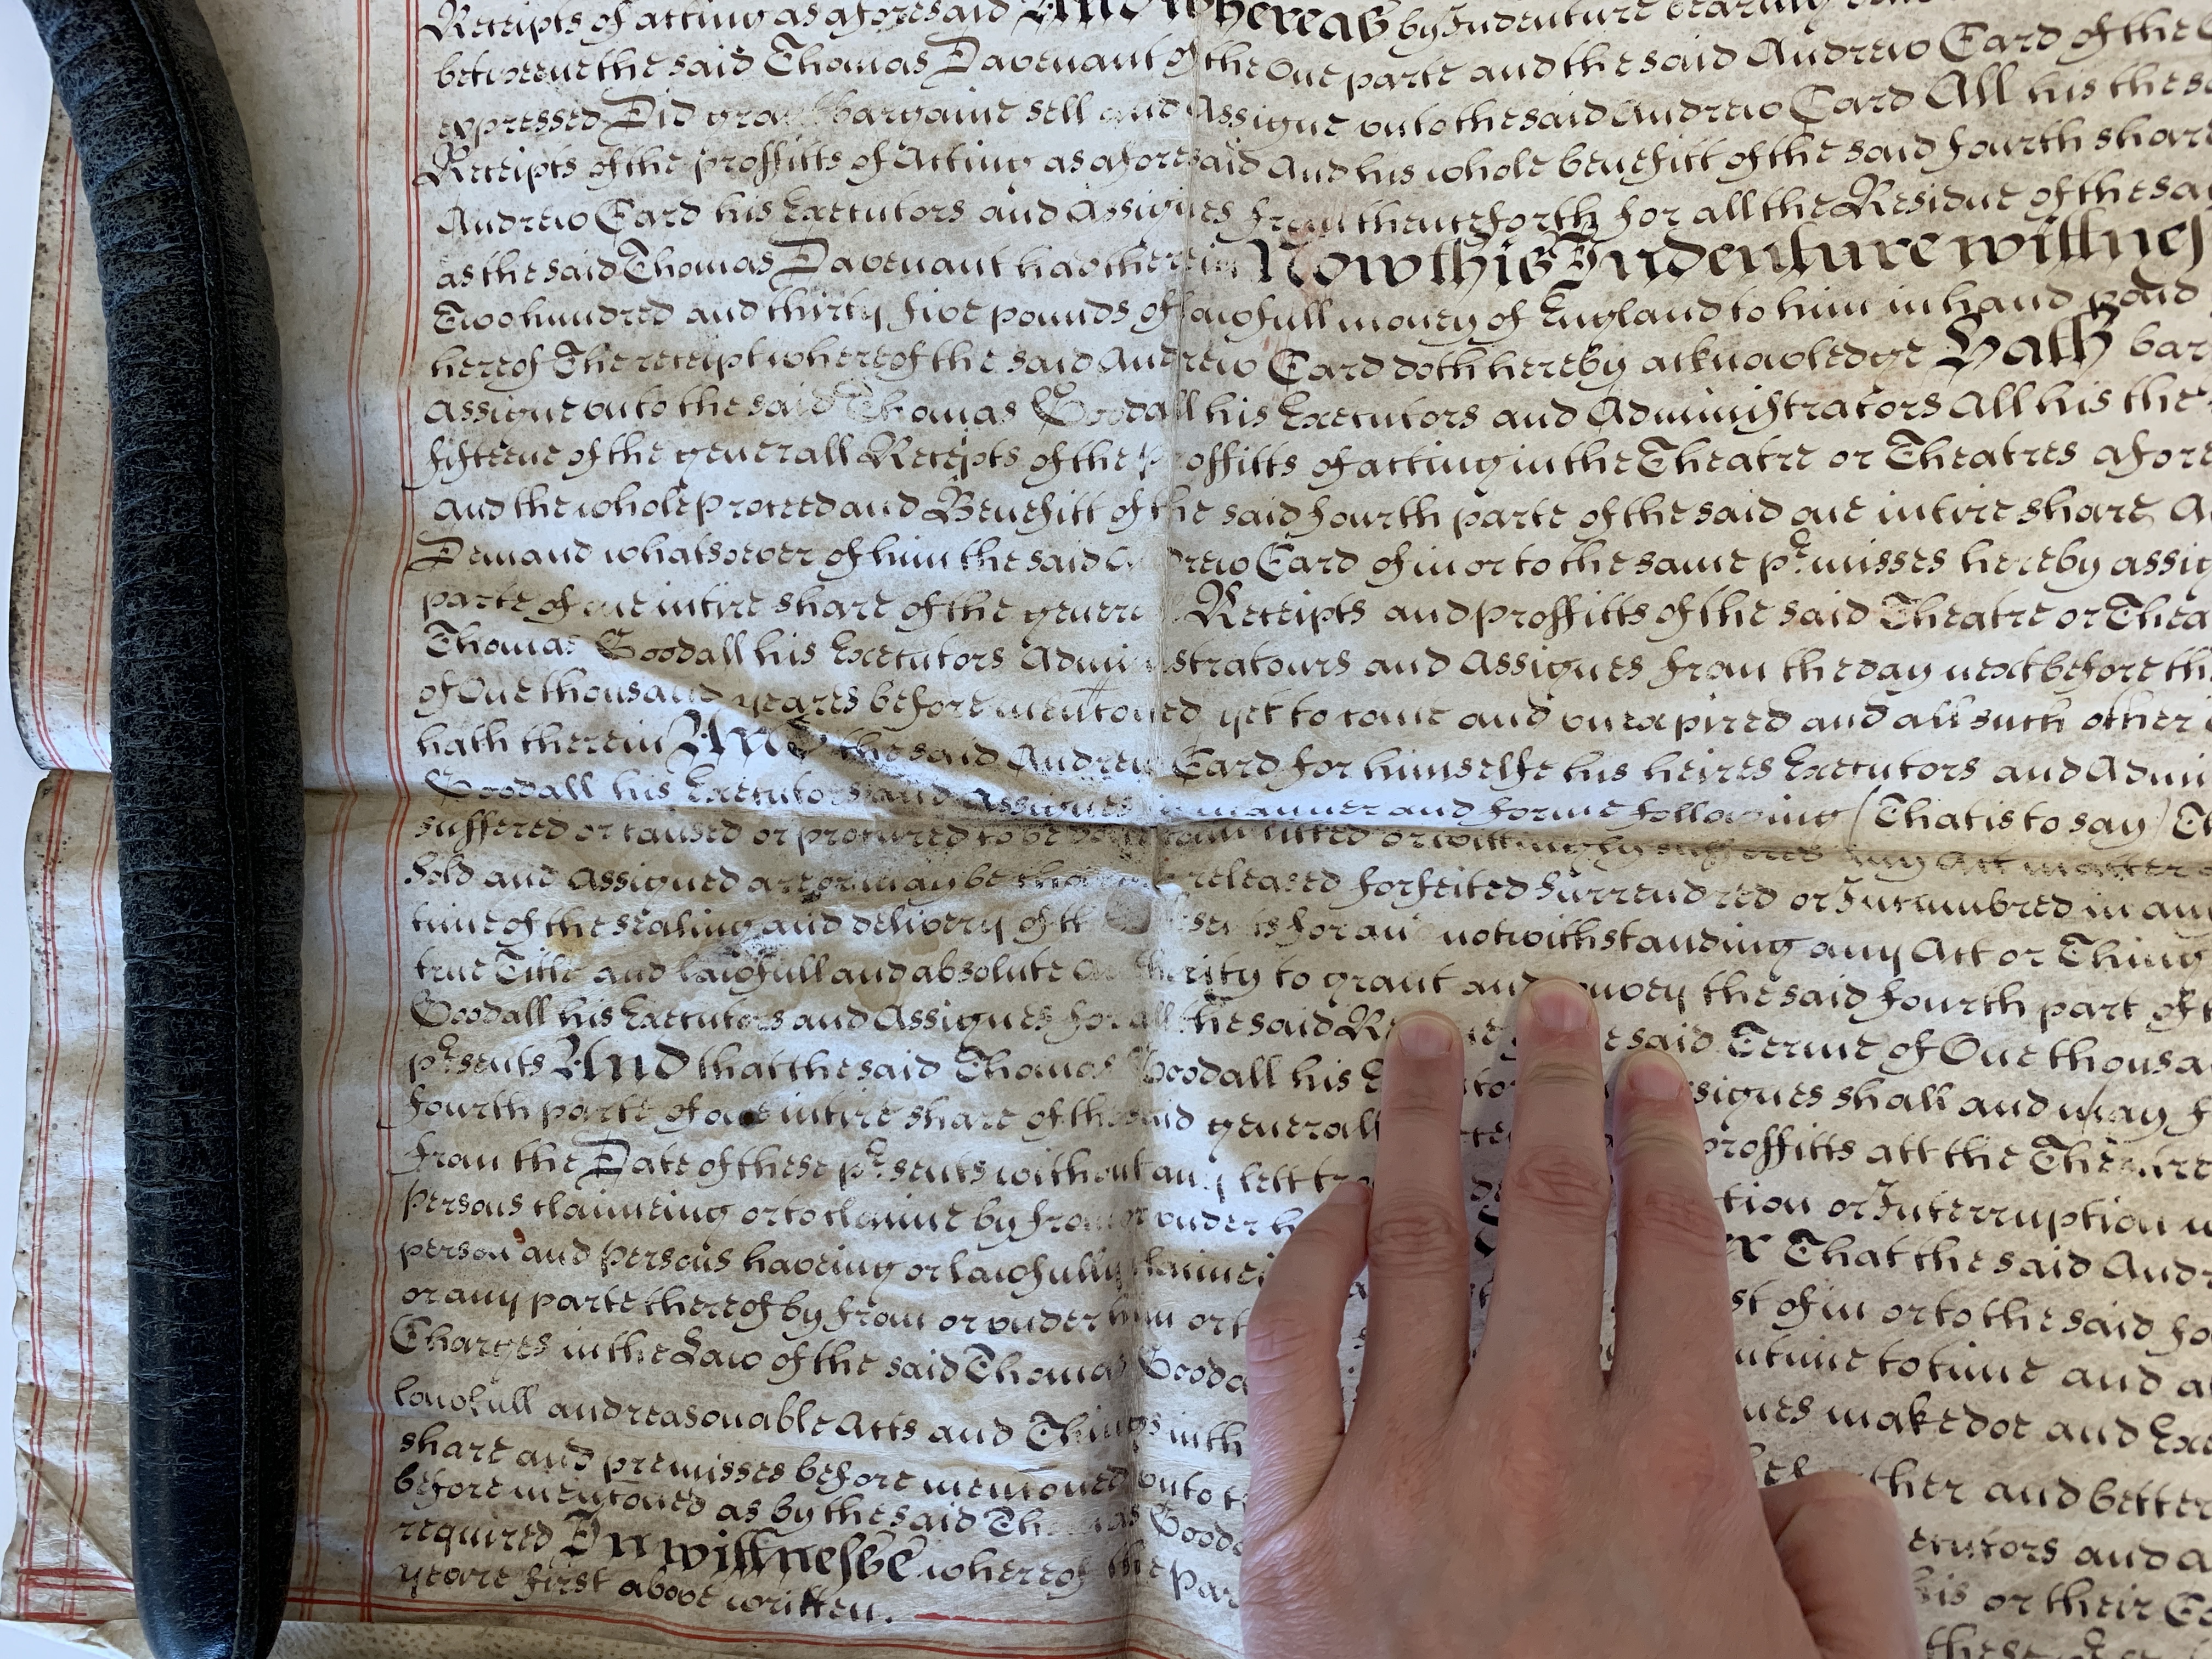 Receipts of acting as aforesaid And whereas by Indenture bearing
betweene the said Thomas Davenant of the One parte and the said Andrew Card of the
expressed Did grant bargaine sell and Assigne unto the said Andrew Card All his the
Receipts of the proffitts of Acting as aforesaid And his whole benefitt of the said fourth share
Andrew Card his Executors and Assignes from thenceforth for all the Residue of the
as the said Thomas Davenant had therein Now this Indenture wittnes
Two hundred and thirty five pounds of lawfull money of England to him in hand paid
hereof The receipt whereof the said Andrew Card doth hereby acknowledge Hath bar
Assigne unto the said Thomas Goodall his Executors and Administrators All his the
fifteene of the generall Receipts of the proffitts of acting in the Theatre or Theatres afore
And the whole proceed and Benefitt of the said fourth parte of the said one intire share
Demand whatsoever of him the said Andrew Card of in or to the same pr.misses hereby assig
parte of one intire share of the generall Receipts and proffitts of the said Theatre or Thea
Thomas Goodall his Executors Administratours and Assignes from the day next before th
of One thousand yeares before mentioned yet to come and unexpired and all such other
hath therein And the said Andrew Card for himselfe his heires Executors and Admin
Goodall his Executors and Assignes in manner and forme following (That is to say)
suffered or caused or procured to be done committed or wittingly suffered any Act matter
Sold and Assigned are or may be released forfeited Surrendred or Incumbred in any
time of the sealing and delivery of notwithstanding any Act or Thing
true Title and lawfull and absolute Authority to grant and convey the said fourth part of
Goodall his Executors and Assignes for all the said said Terme of One thousa
pr.sents And that the said Thomas Goodall his ssignes shall and may
fourth parte of one intire share of the said generall proffitts att the Theatre
from the Date of these pr.sents without any lett tion or Interruption
Persons claimeing or to claime by from or under That the said And
person and Persons haveing or lawfully st of in or to the said
or any parte thereof by from or under him time to time and
Charges in the Law of the said Thomas Gooda make doe and Exe
lawfull and reasonable Acts and Things in th and better
share and premisses before mentioned unto ecutors and
before mentioned as by the said Thomas Gooda his or their
required In wittnesse whereof the Par
yeare first above written.